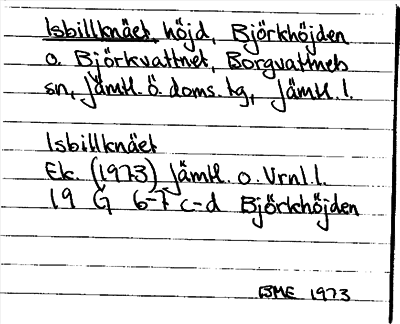 Isbillknäet, höjd, Björkhöjden
o. Björkvattnet, Borgvattnets
sn, Jämtl. ö. doms. tg, Jämtl. l.
Isbillknäet
Ek. (1973) Jämtl. o. Vrnl. l.
19 G 6-7 c-d Björkhöjden
BME 1973